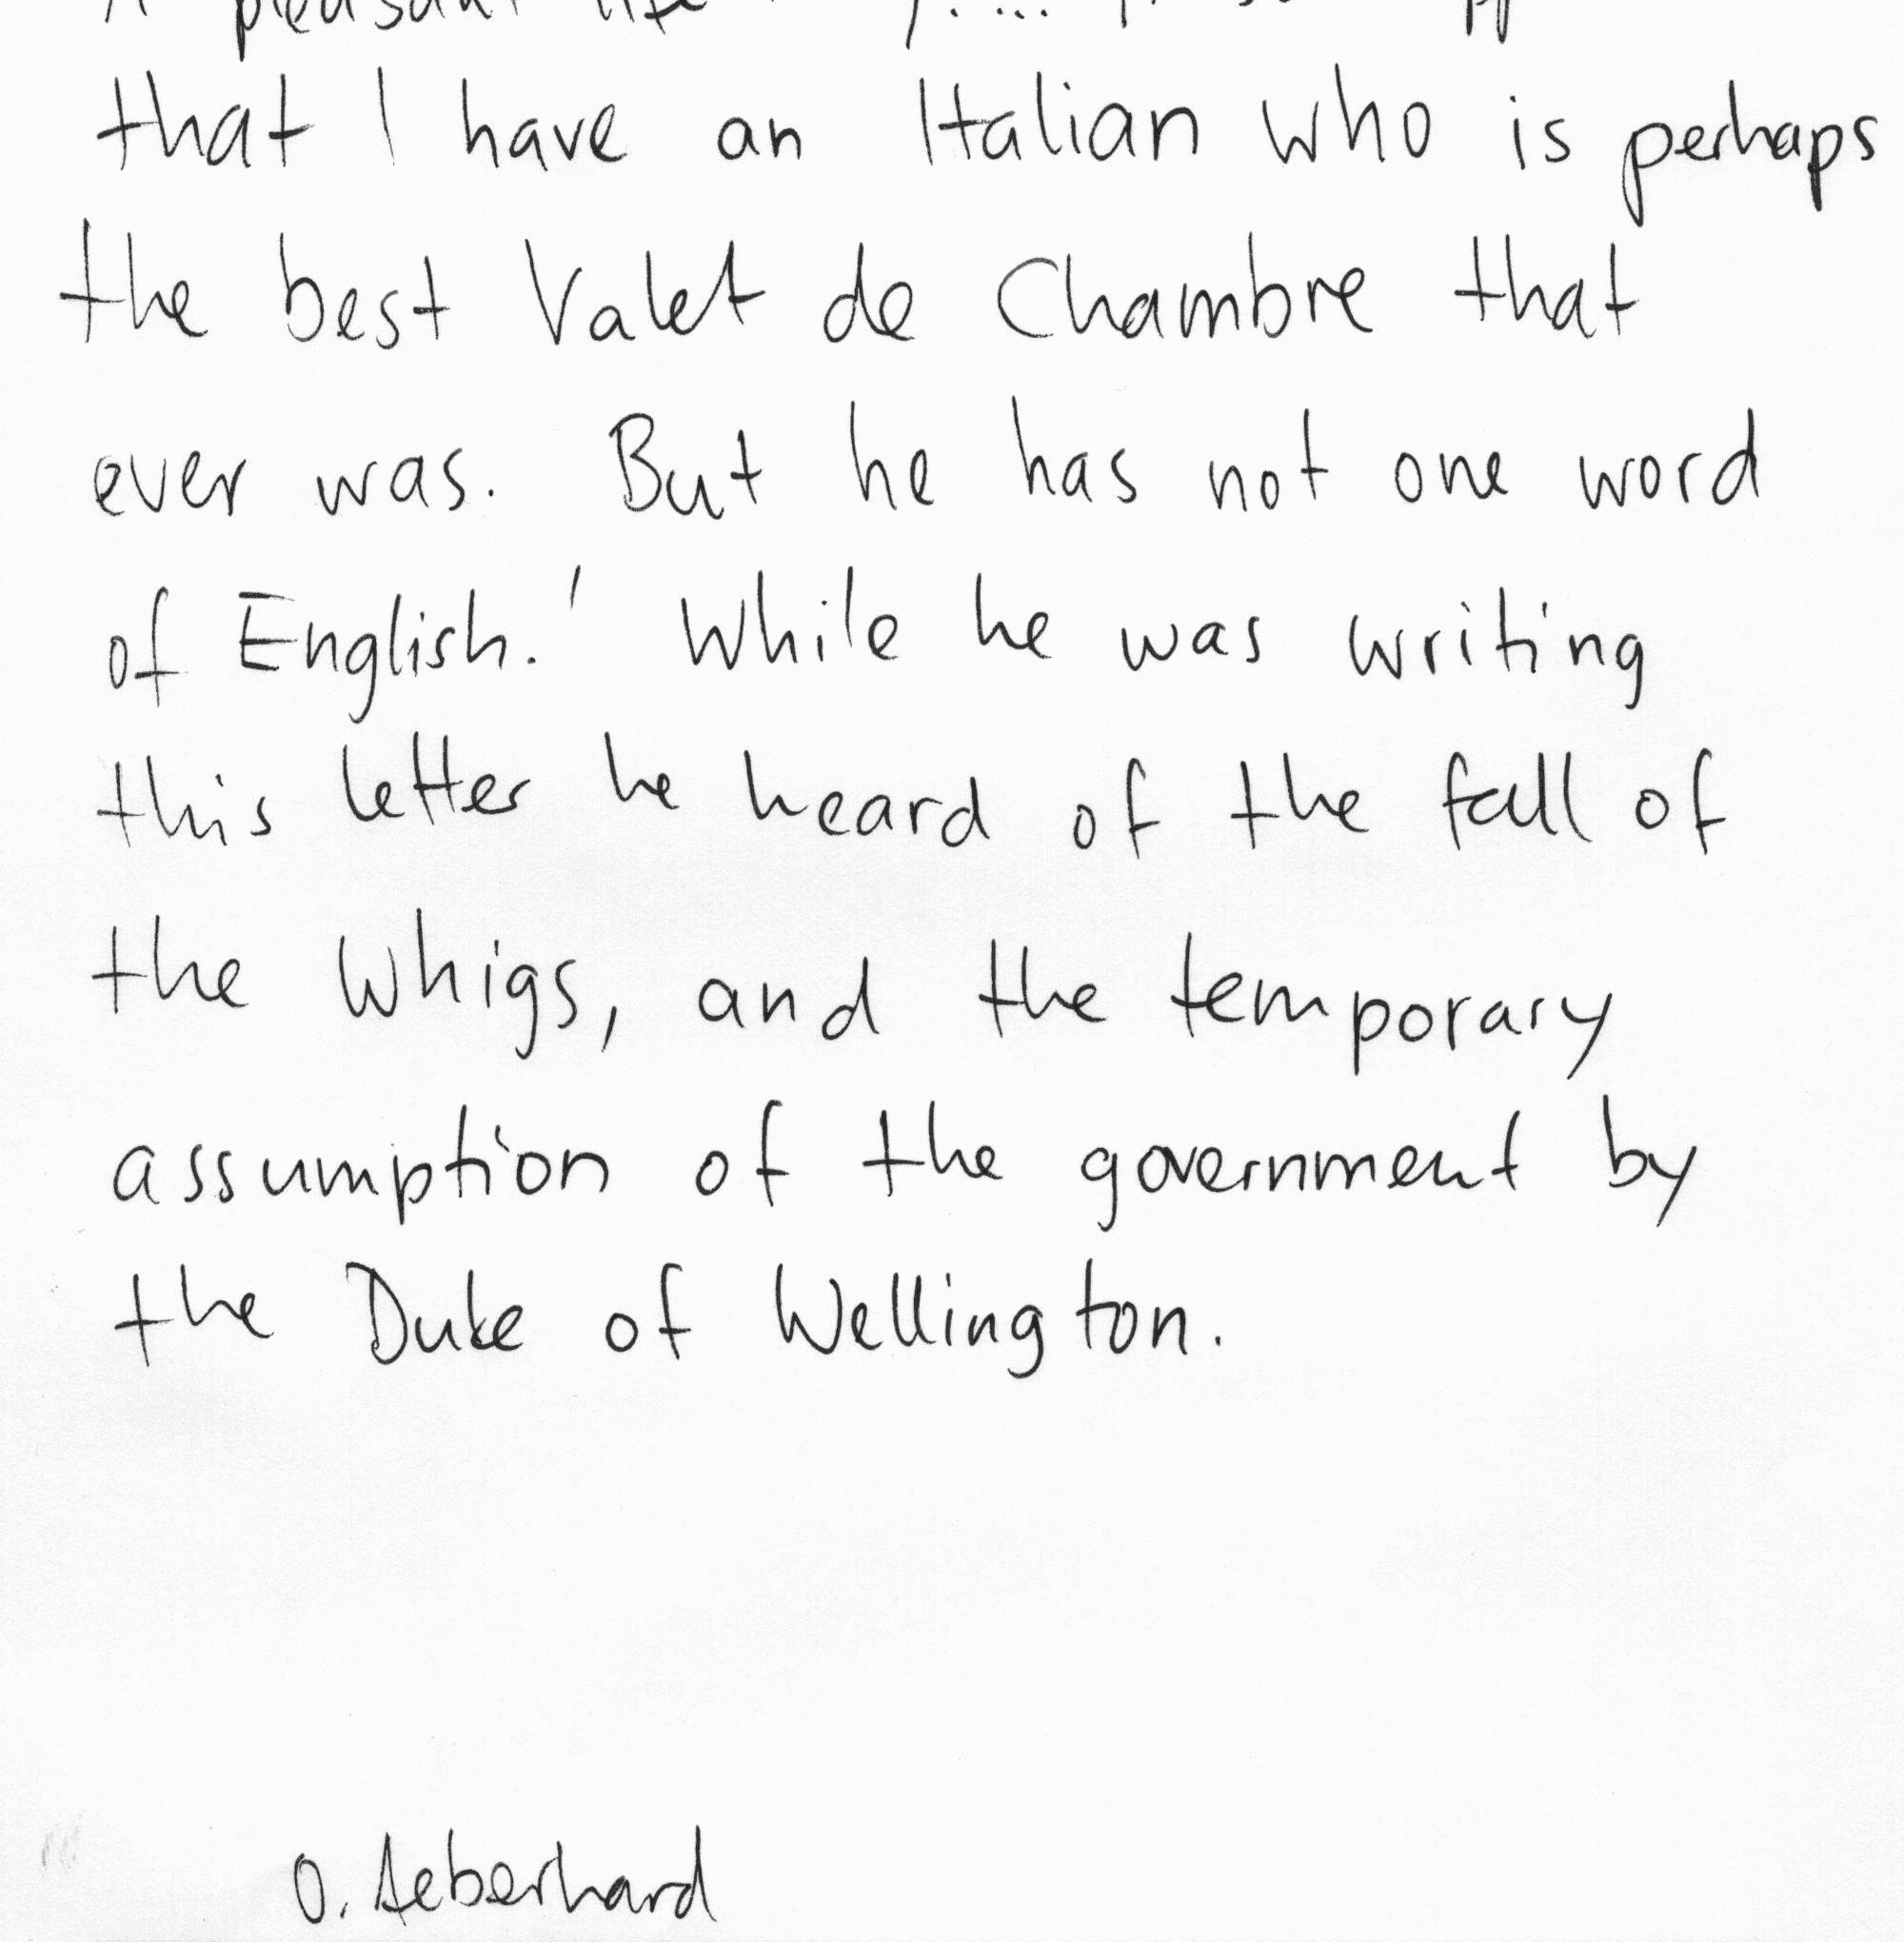 A pleasant life
that I have an Italian who is perhaps
the best Valet de Chambre that
ever was. But he has not one word
of English.' While he was writing
this letter he heard of the fall of
the Whigs, and the temporary
assumption of the government by
the Duke of Wellington.
O. Aeberhard